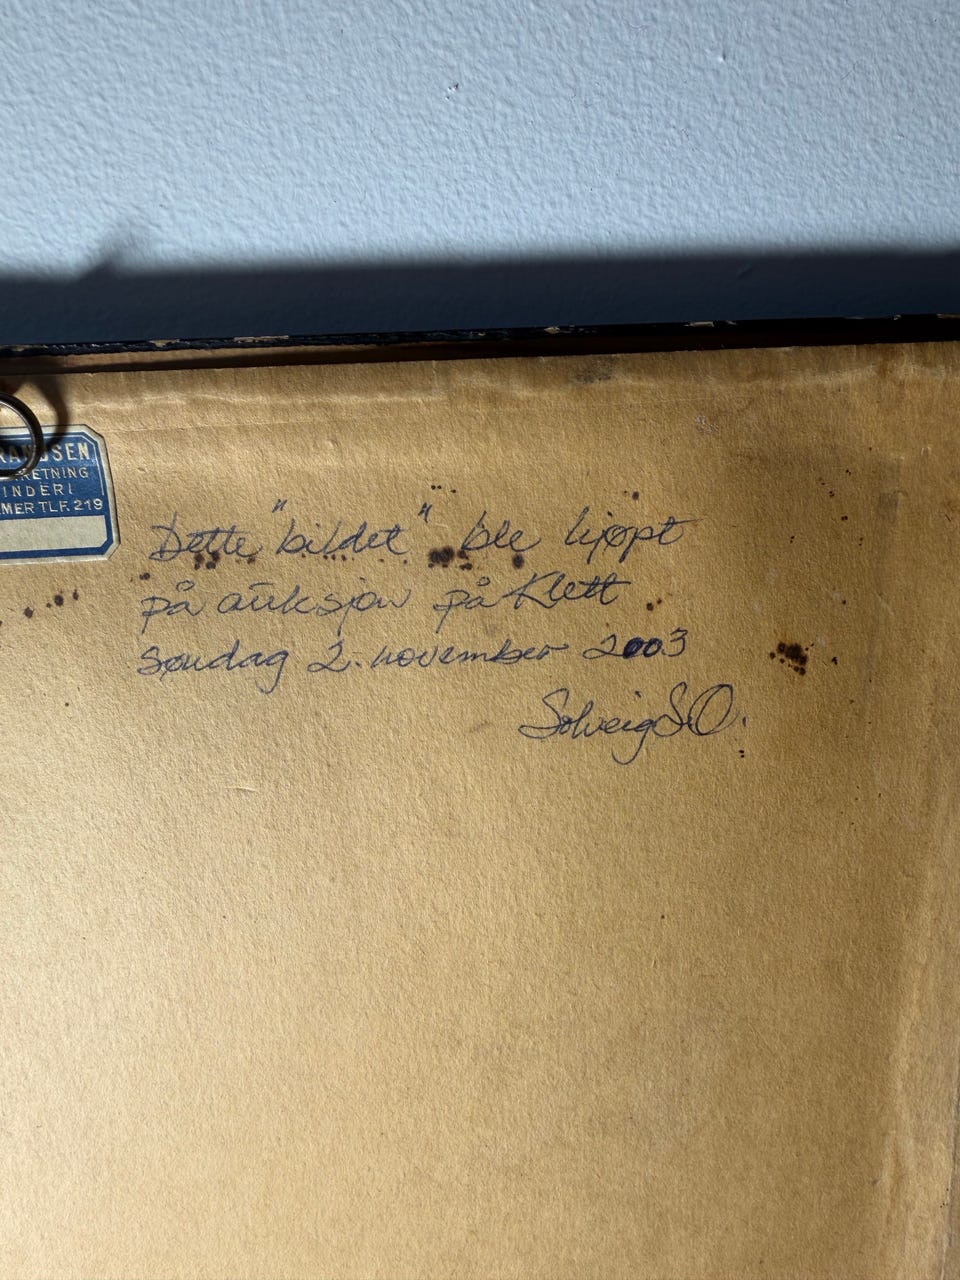 RANDSEN
RETNING
INDERI
MER TLF. 219
Dette "bildet" ble kjøpt
på auksjon på Klett
søndag 2. november 2003
Solveig S.O.